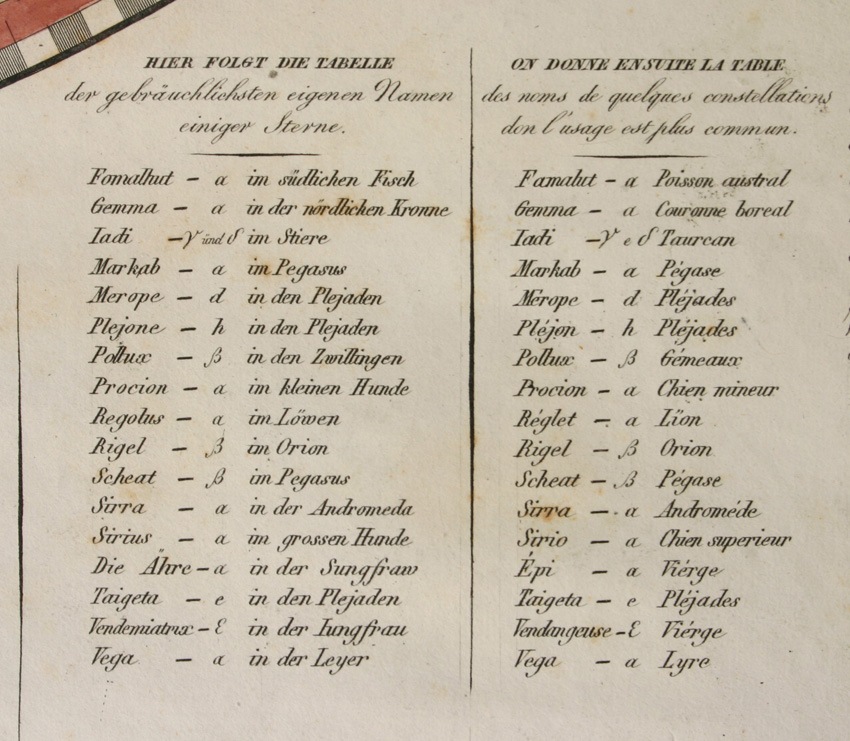 HIER FOLGT DIE TABELLE
der gebräuchlichsten eigenen Namen
einiger Sterne.
Fomalhut – α im südlichen Fisch
Gemma – α in der nördlichen Kronne
Iadi – γ ünd δ im Stiere
Markab – α im Pegasus
Merope – d in den Plejaden
Plejone – h in den Plejaden
Pollux – β in den Zwillingen
Procion – α im kleinen Hunde
Regolus – α im Löwen
Rigel – β im Orion
Scheat – β im Pegasus
Sirra – α in der Andromeda
Sirius – α im grossen Hunde
Die Ähre – α in der Sungfraw
Taigeta – e in den Plejaden
Vendemiatrix – ε in der Iungfrau
Vega – α in der Leyer
ON DONNE ENSUITE LA TABLE
des noms de quelques constellations
don l'usage est plus commun.
Famalut – α Poisson austral
Gemma – α Couronne boreal
Iadi – γ e δ Taurcan
Markab – α Pégase
Mérope – d Pléjades
Pléjon – h Pléjades
Pollux – β Gémeaux
Procion – α Chien mineur
Réglet – α Lïon
Rigel – β Orion
Scheat – β Pégase
Sirra – α Androméde
Sirio – α Chien superieur
Épi – α Viérge
Taigeta – e Pléjades
Vendangeuse – ε Viérge
Vega – α Lyre